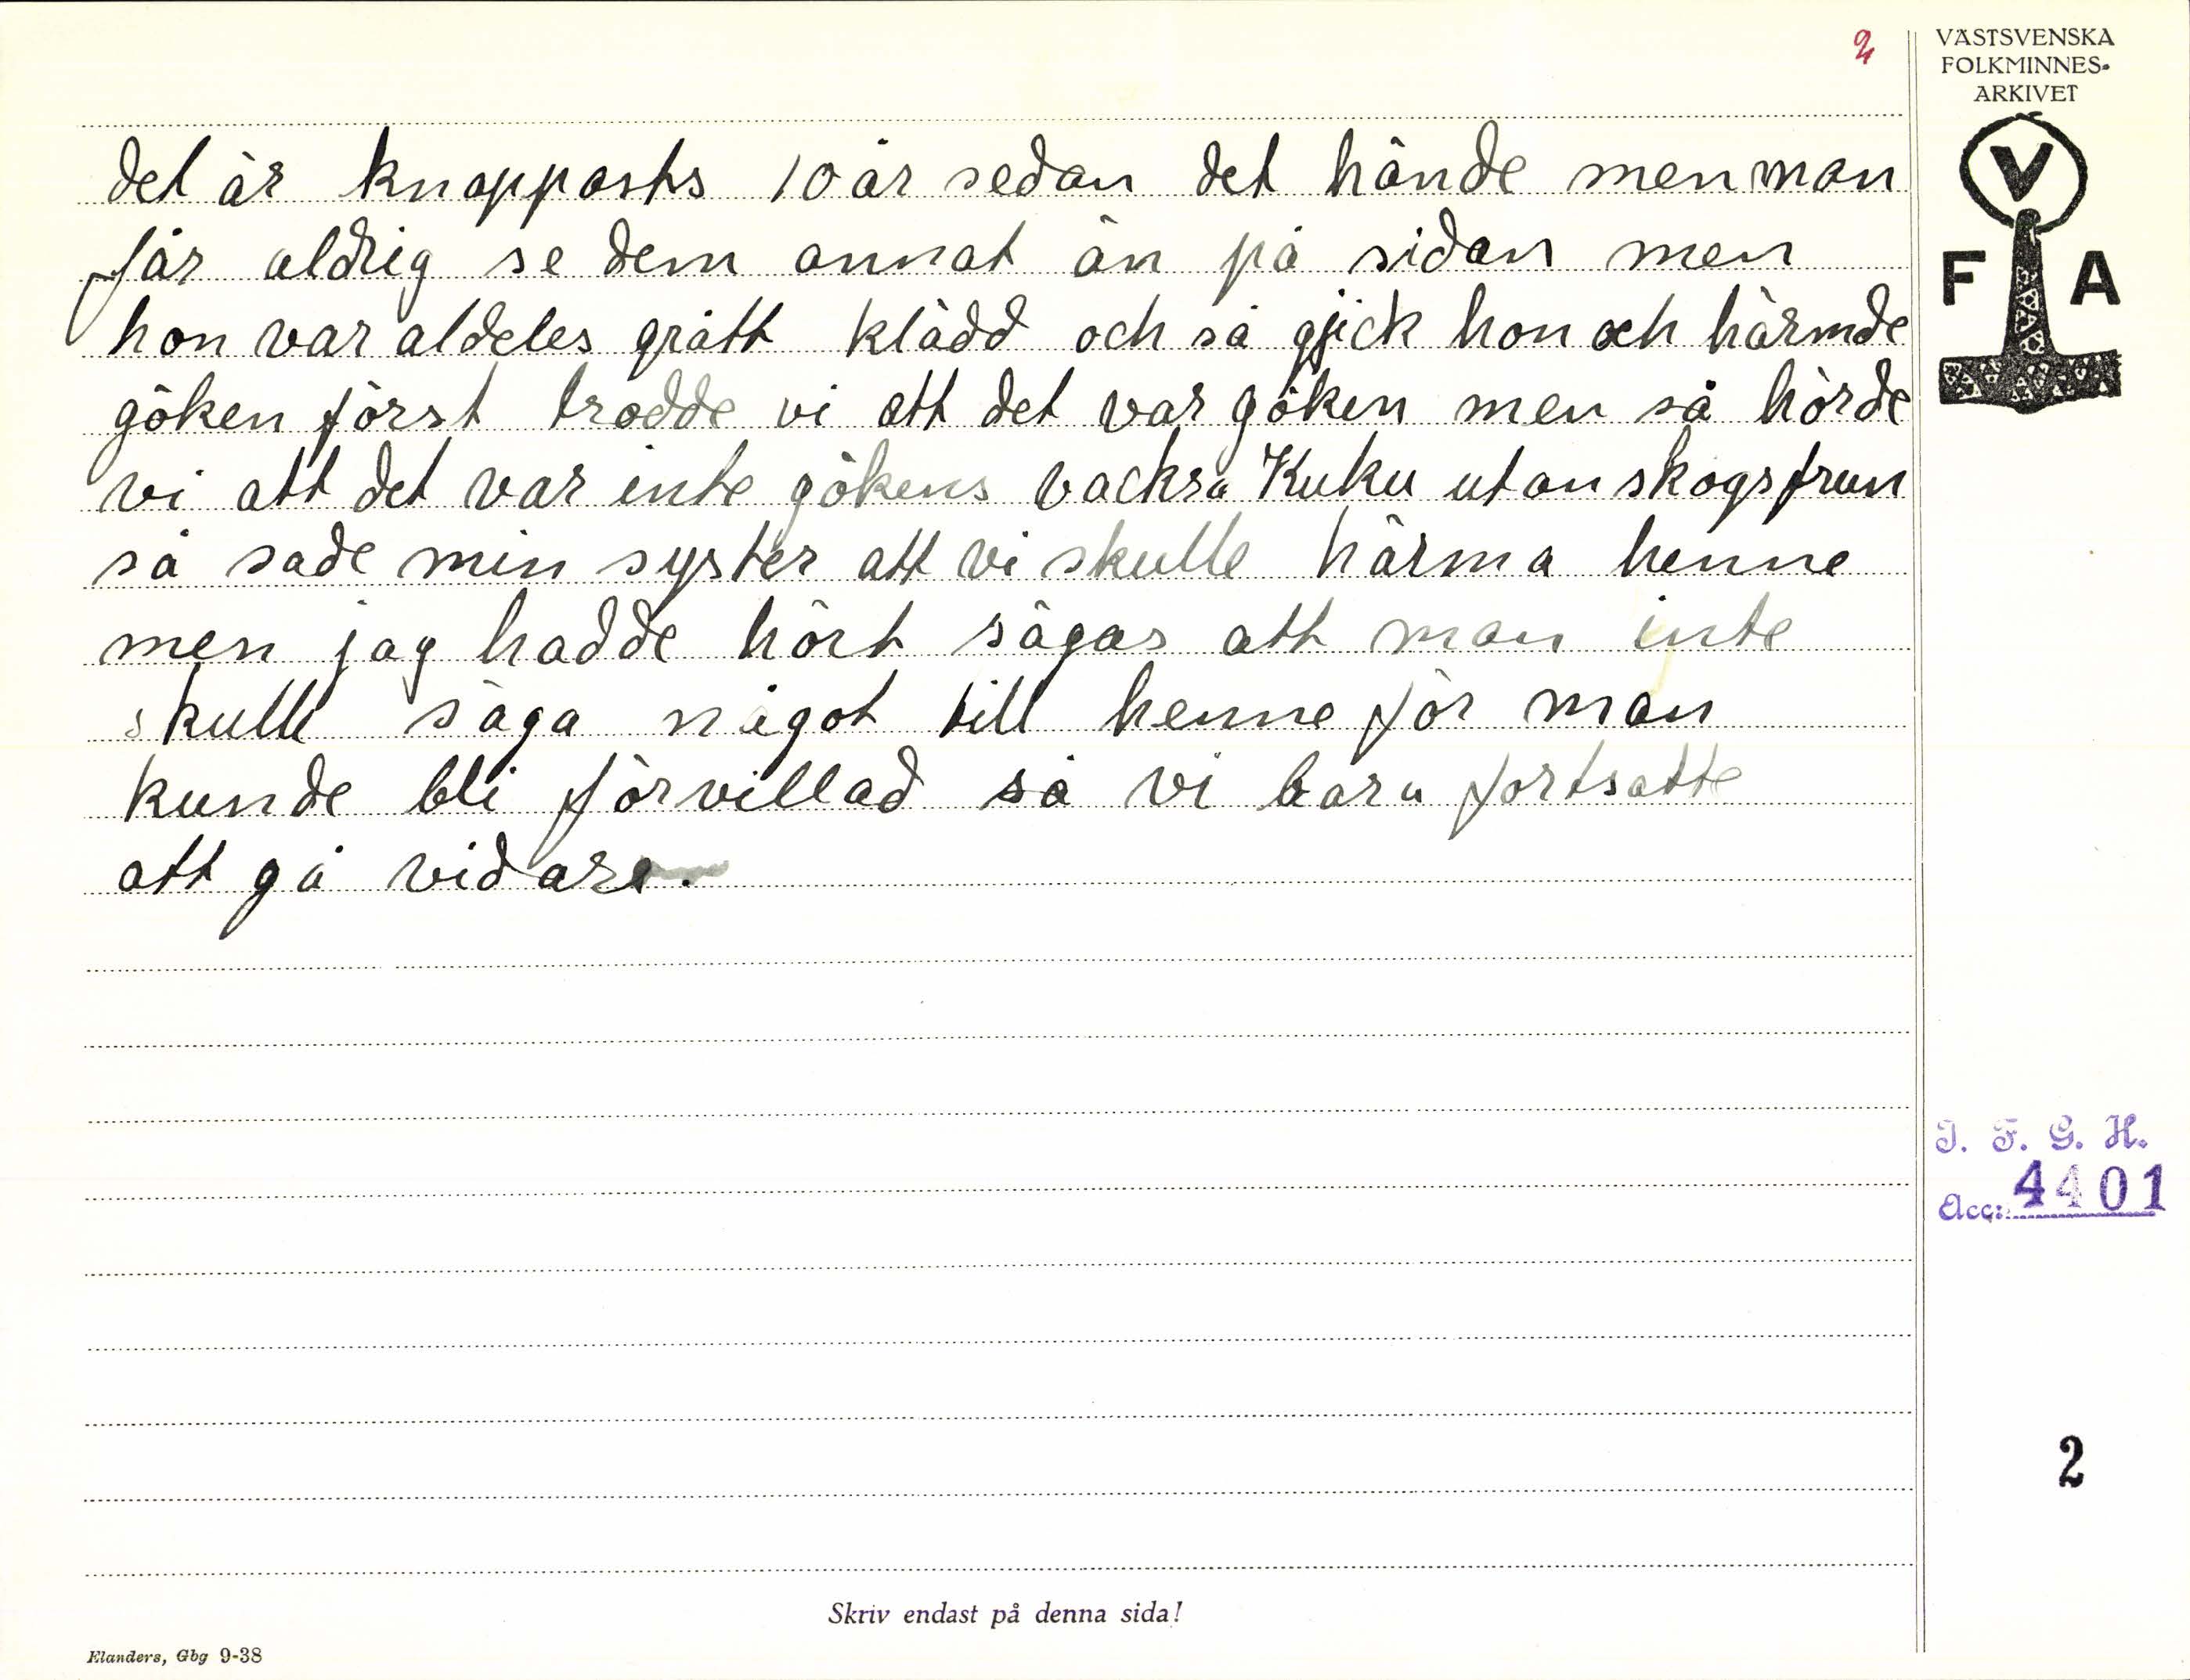 2
VÄSTSVENSKA
FOLKMINNES-
ARKIVET
V
F A
det är knappasts 10 år sedan det hände men man
får aldrig se dem annat än på sidan men
hon var aldeles grått klädd och så gjick hon och härmde
göken först trodde vi att det var göken men så hörde
vi att det var inte gökens vackra Kuku utan skogsfrun
så sade min syster att vi skulle härma henne
men jag hadde hört sägas att man inte
skulle säga något till henne för man
kunde bli förvillad så vi bara fortsatte
att gå vidare.
I. F. G. H.
Acc: 4401
2
Skriv endast på denna sida!
Elanders, Gbg 9-38